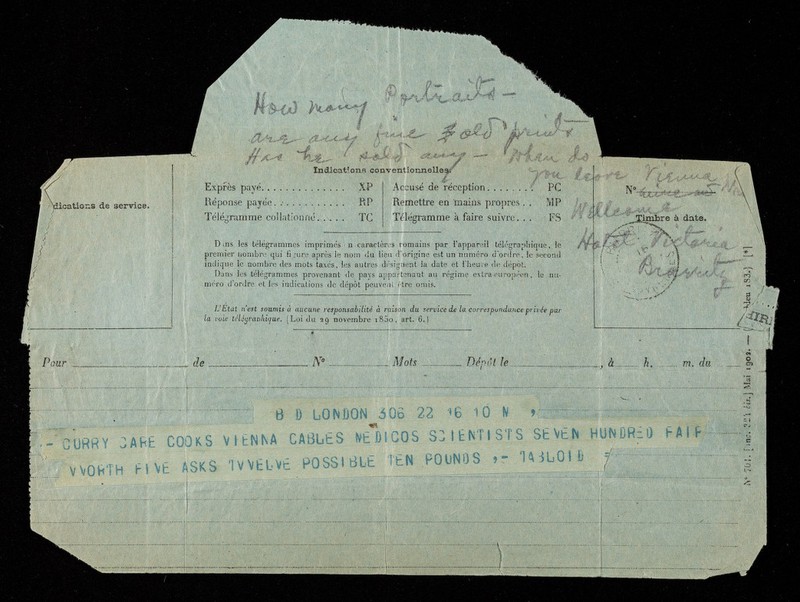 How many Portraits —
are any fine old prints
Has he sold any — When do
you leave Vienna
Wellcome
Hotel Victoria
Indications conventionnelles.
dications de service.
Exprès payé............... XP
Réponse payée............. RP
Télégramme collationné...... TC
Accusé de réception........ PC
Remettre en mains propres.. MP
Télégramme à faire suivre... FS
N°
Timbre à date.
Dans les télégrammes imprimés en caractères romains par l'appareil télégraphique, le
premier nombre qui figure après le nom du lieu d'origine est un numéro d'ordre, le second
indique le nombre des mots taxés, les autres désignent la date et l'heure de dépôt.
Dans les télégrammes provenant de pays appartenant au régime extra-européen, le nu-
méro d'ordre et les indications de dépôt peuvent être omis.
L'État n'est soumis à aucune responsabilité à raison du service de la correspondance privée par
la voie télégraphique. (Loi du 29 novembre 1850, art. 6.)
Pour de N° Mots Dépôt le , à h, m. du
B D LONDON 306 22 16 10 N ,
- CURRY CARE COOKS VIENNA CABLES MEDICOS SCIENTISTS SEVEN HUNDRED FAIR
VVORTH FIVE ASKS TVVELVE POSSIBLE TEN POUNDS ,- TABLOID =
Mai 1902. —